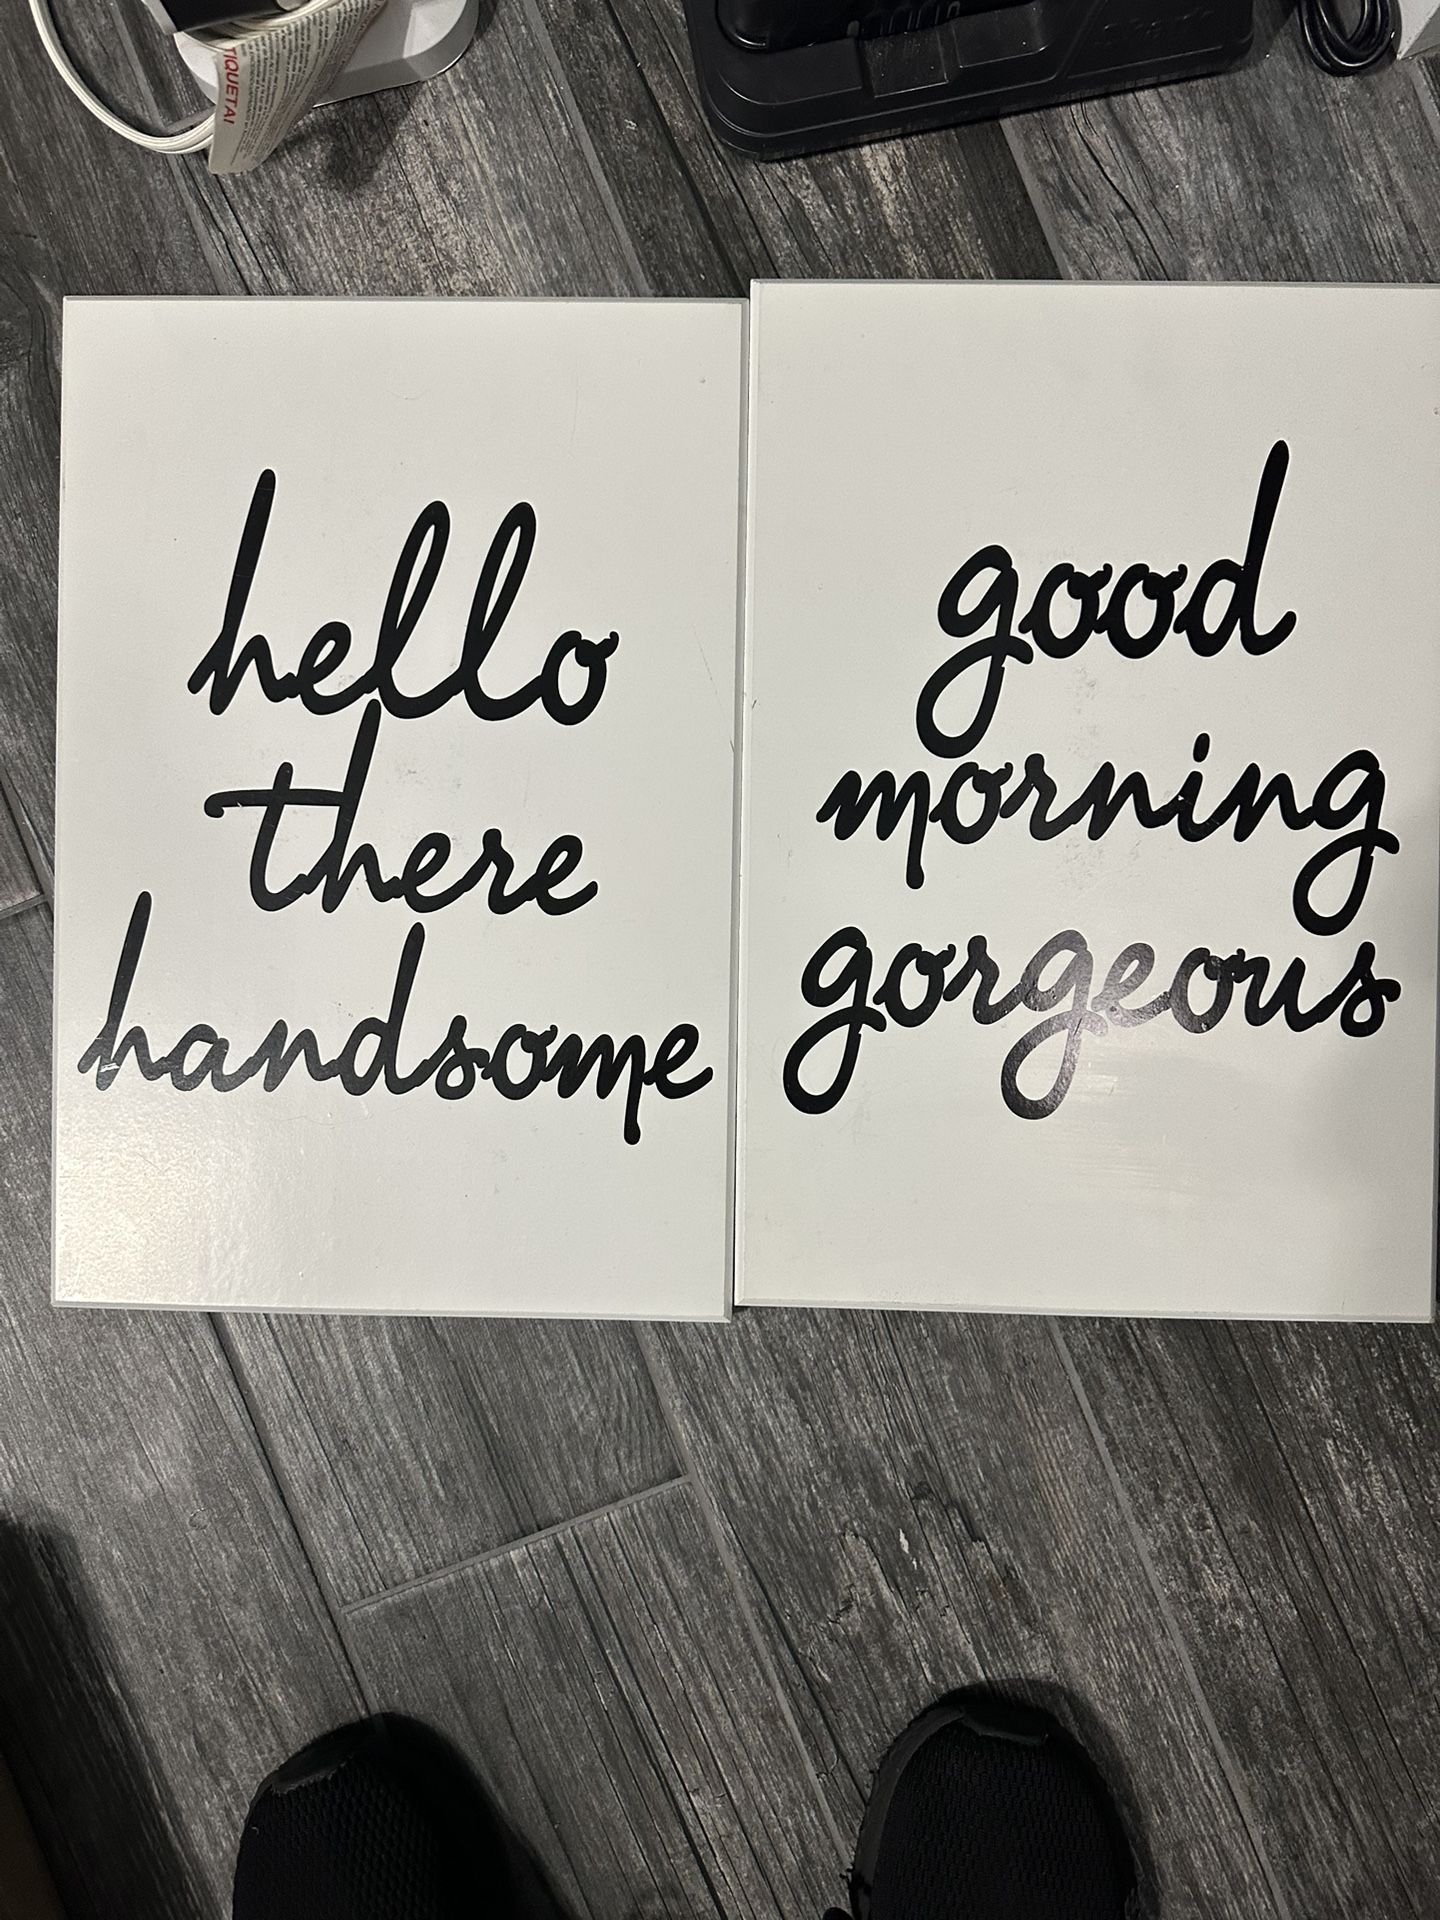 TIQUETAI
hello
there
handsome
good
morning
gorgeous